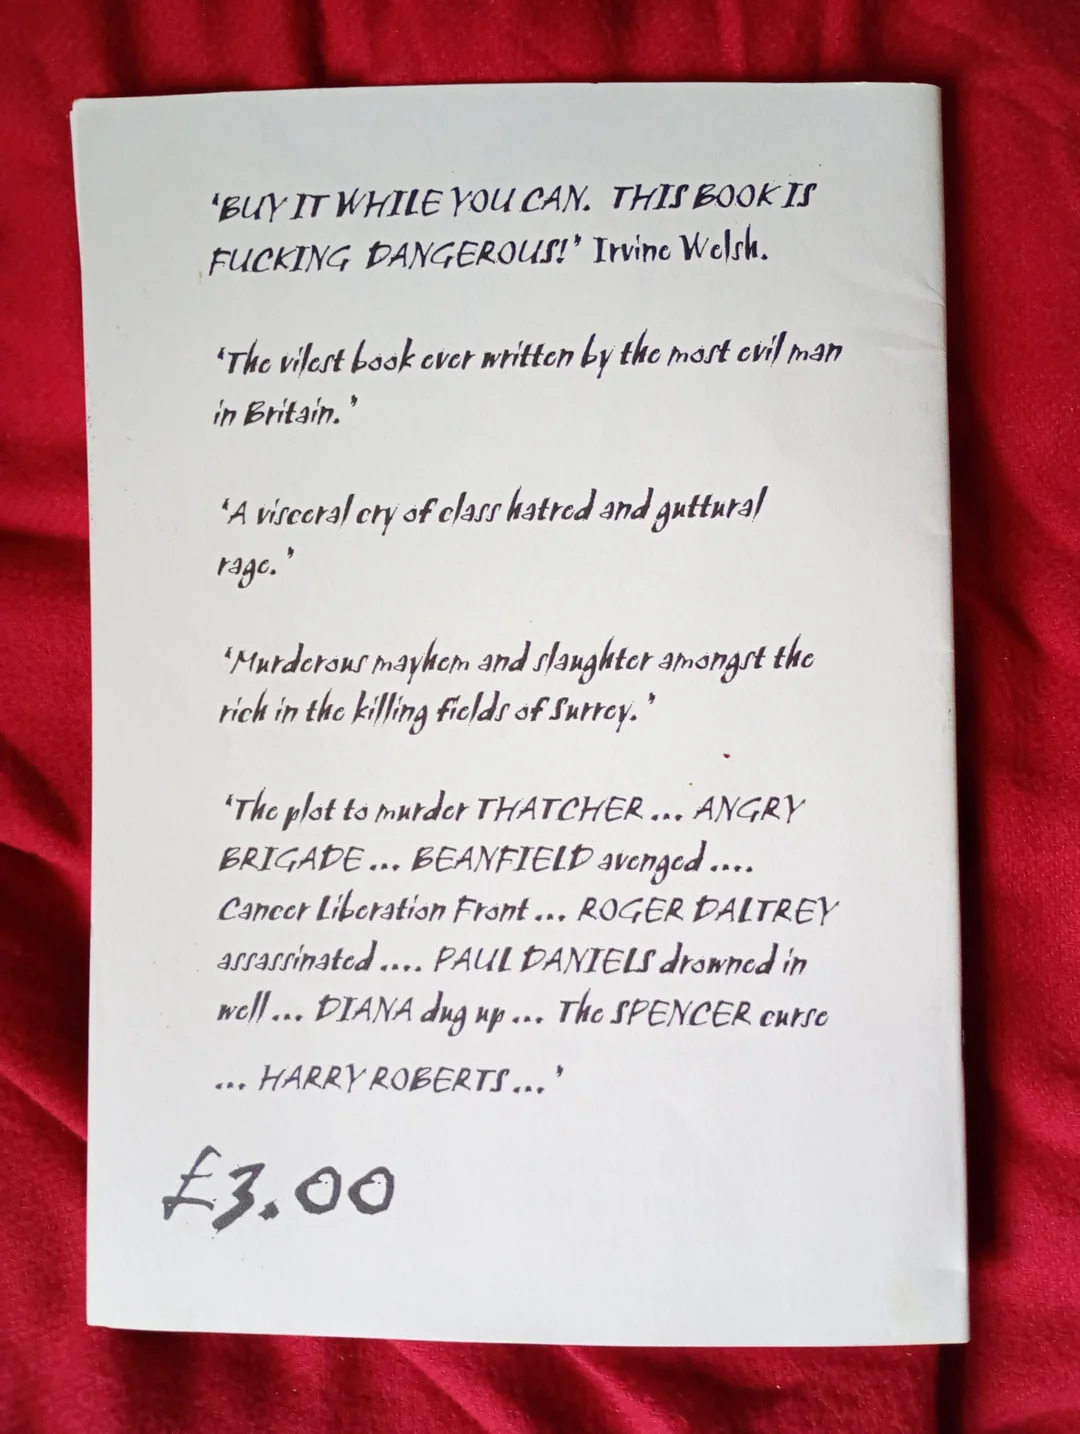 'BUY IT WHILE YOU CAN. THIS BOOK IS
FUCKING DANGEROUS!' Irvine Welsh.
'The vilest book ever written by the most evil man
in Britain.'
'A visceral cry of class hatred and guttural
rage.'
'Murderous mayhem and slaughter amongst the
rich in the killing fields of Surrey.'
'The plot to murder THATCHER... ANGRY
BRIGADE... BEANFIELD avenged....
Cancer Liberation Front... ROGER DALTREY
assassinated.... PAUL DANIELS drowned in
well... DIANA dug up... The SPENCER curse
... HARRY ROBERTS...'
£3.00